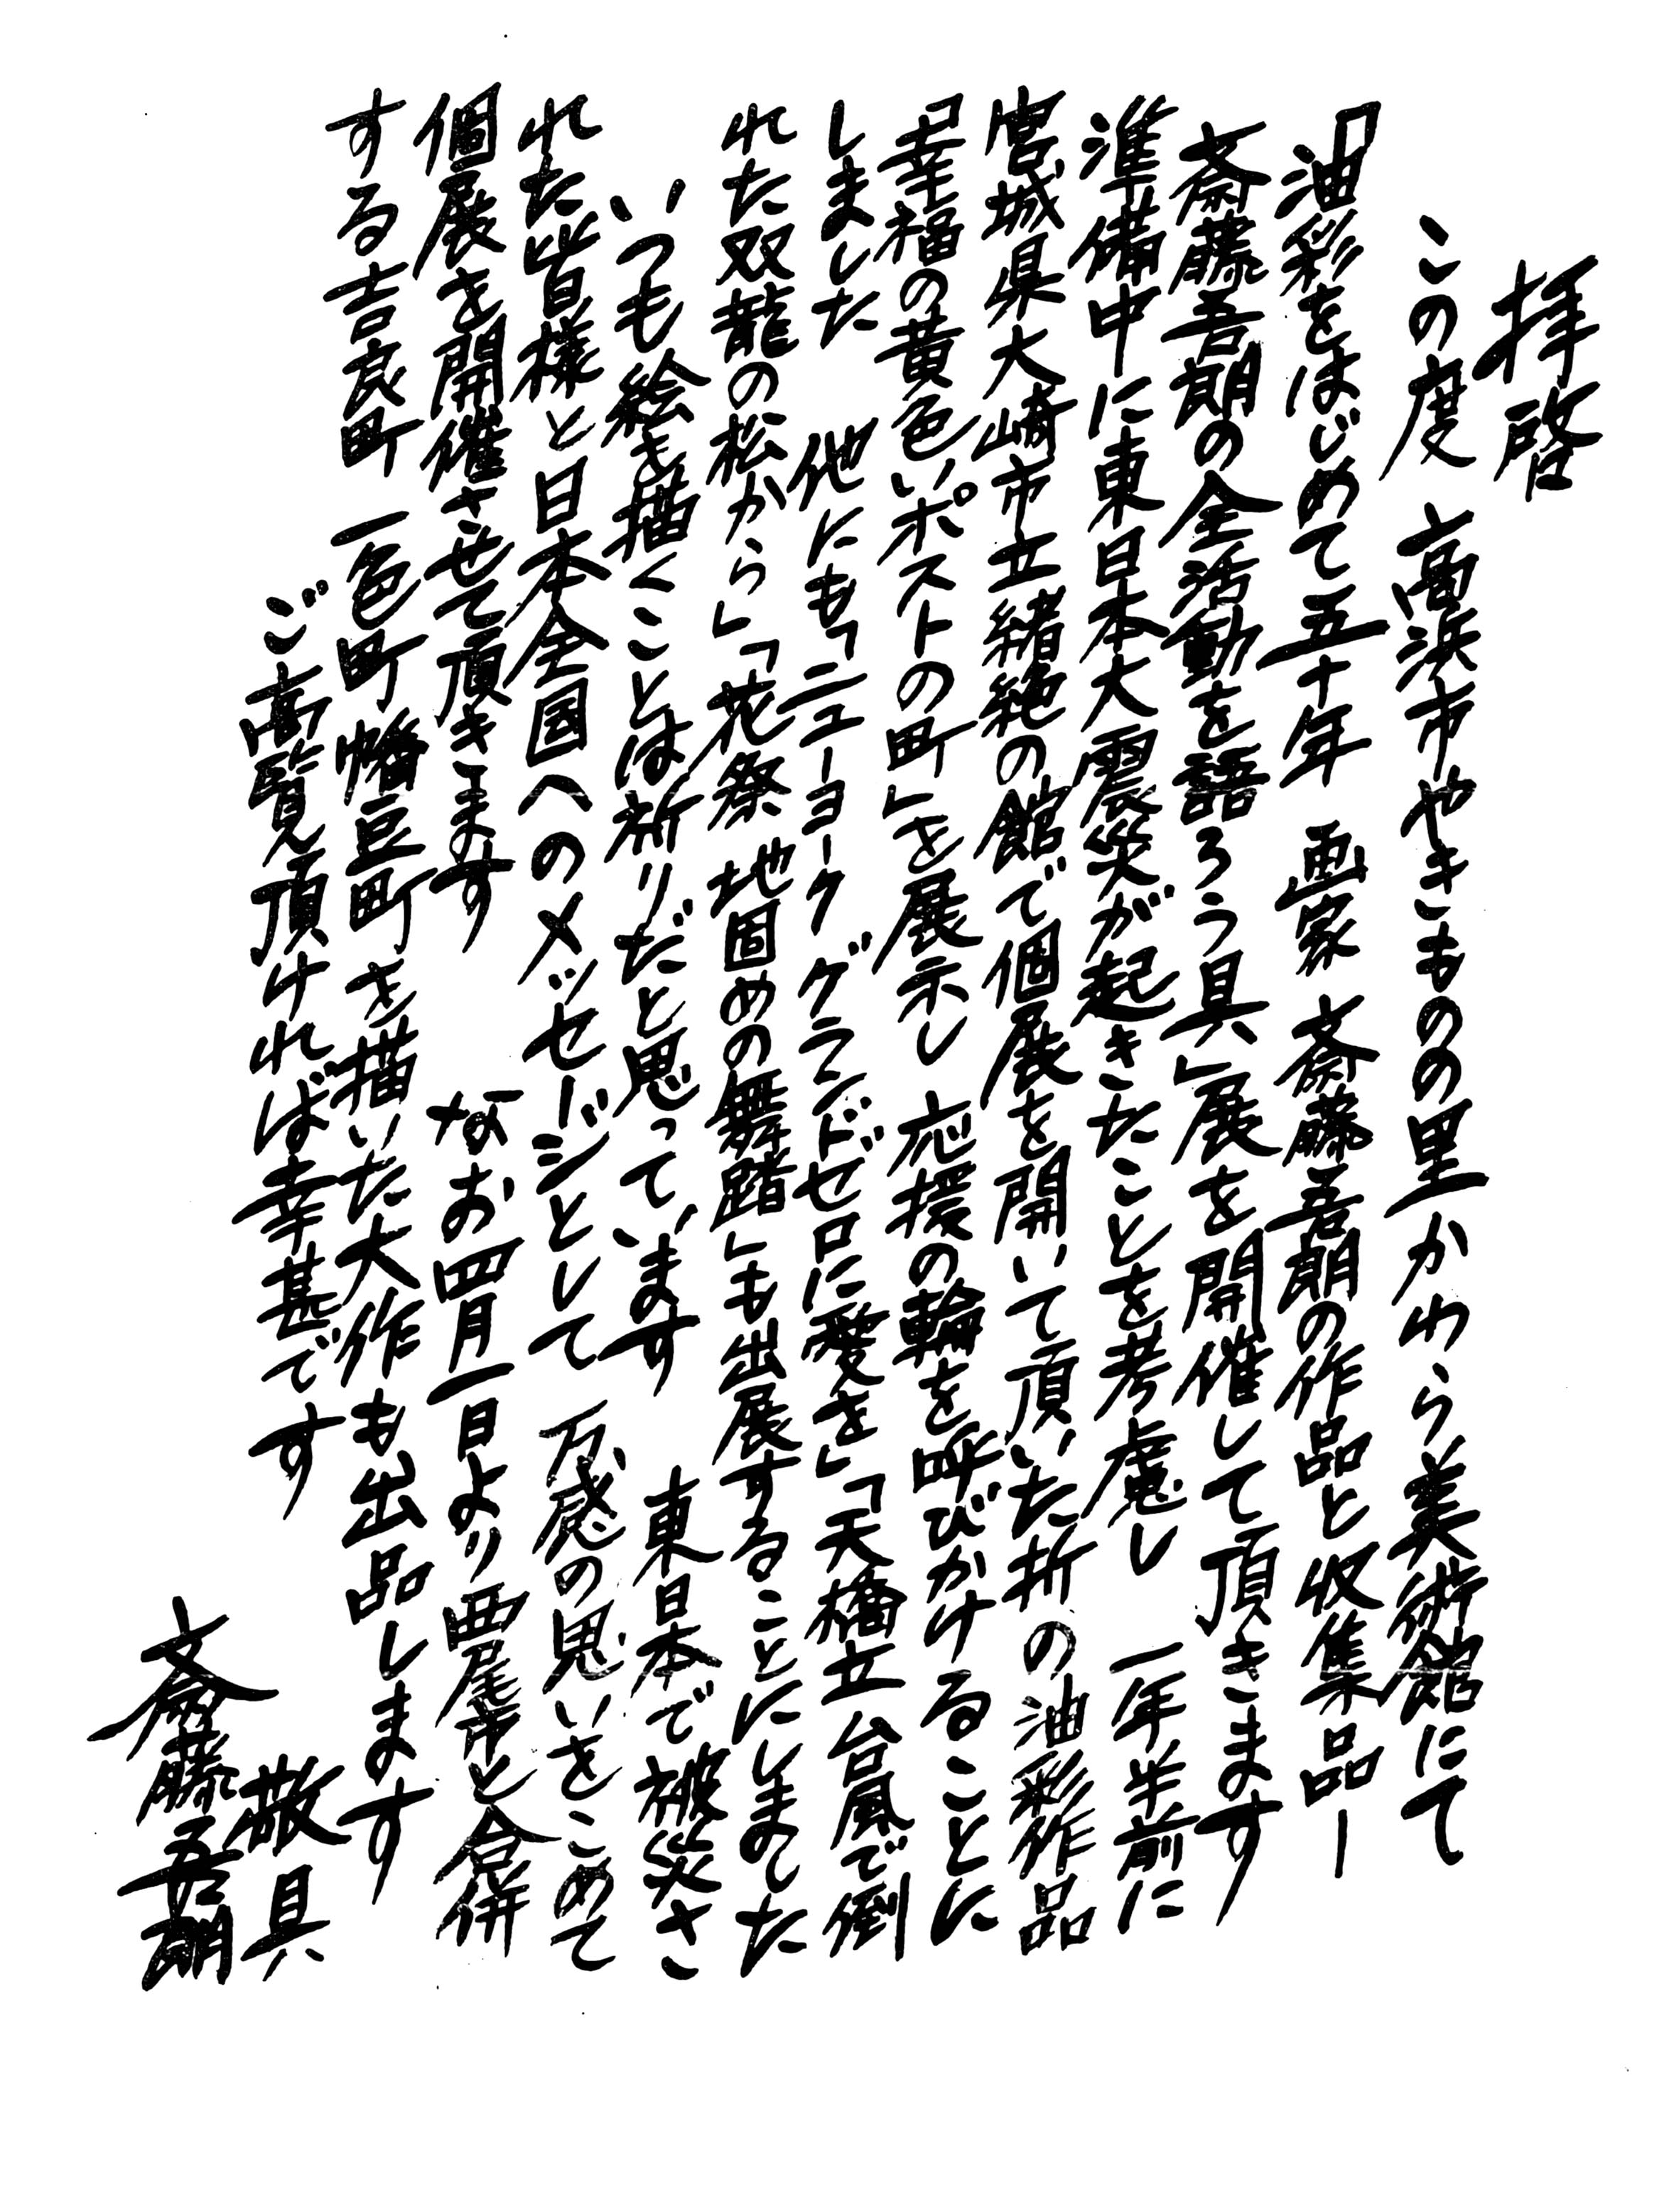 拝啓
この度 高浜市やきものの里かわら美術館にて
「油彩をはじめて五十年 画家 斎藤吾朗の作品と収集品ー
斎藤吾朗の全活動を語ろう具」展を開催して頂きます
準備中に東日本大震災が起きたことを考慮し 一年半前に
宮城県大崎市立緒絶の館で個展を開いて頂いた折の油彩作品
「幸福の黄色いポストの町」を展示し 応援の輪を呼びかけることに
しました 他にも「ニューヨーク グランドゼロに愛を」「天橋立 台風で倒
れた双龍の松から」「花祭 地固めの舞踏」も出展することにしました
いつも絵を描くことは祈りだと思っています 東日本で被災さ
れた皆様と日本全国へのメッセージとして 万感の思いをこめて
個展を開催させて頂きます なお四月一日より西尾市と合併
する吉良町 一色町 幡豆町を描いた大作も出品します
ご高覧頂ければ幸甚です
敬具
斎藤吾朗